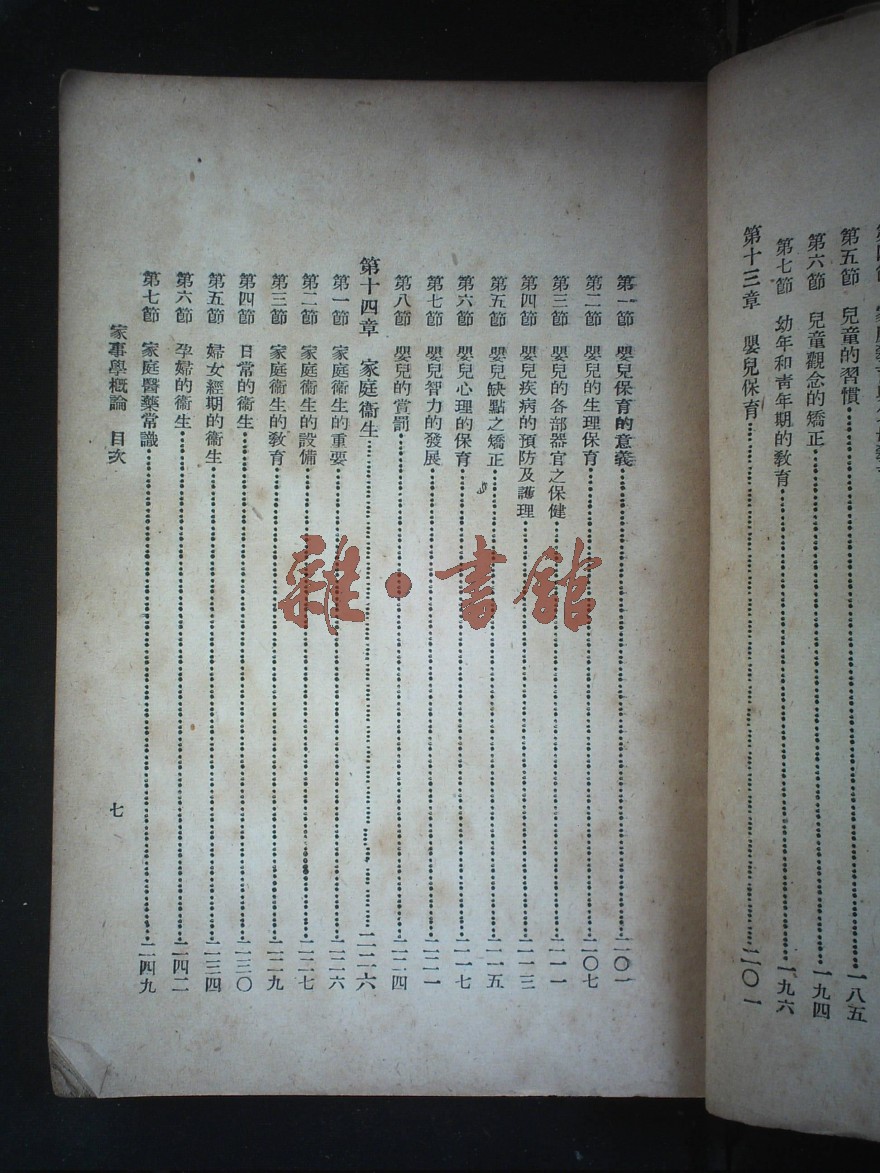 第五節　兒童的習慣……一八五
第六節　兒童觀念的矯正……一九四
第七節　幼年和靑年期的敎育……一九六
第十三章　嬰兒保育……二〇一
第一節　嬰兒保育的意義……二〇一
第二節　嬰兒的生理保育……二〇七
第三節　嬰兒的各部器官之保健……二一一
第四節　嬰兒疾病的預防及護理……二一三
第五節　嬰兒缺點之矯正……二一五
第六節　嬰兒心理的保育……二一七
第七節　嬰兒智力的發展……二二一
第八節　嬰兒的賞罰……二二四
第十四章　家庭衞生……二二六
第一節　家庭衞生的重要……二二六
第二節　家庭衞生的設備……二二七
第三節　家庭衞生的敎育……二二九
第四節　日常的衞生……二三〇
第五節　婦女經期的衞生……二三四
第六節　孕婦的衞生……二四二
第七節　家庭醫藥常識……二四九
家事學槪論　目次　七
雜·書館